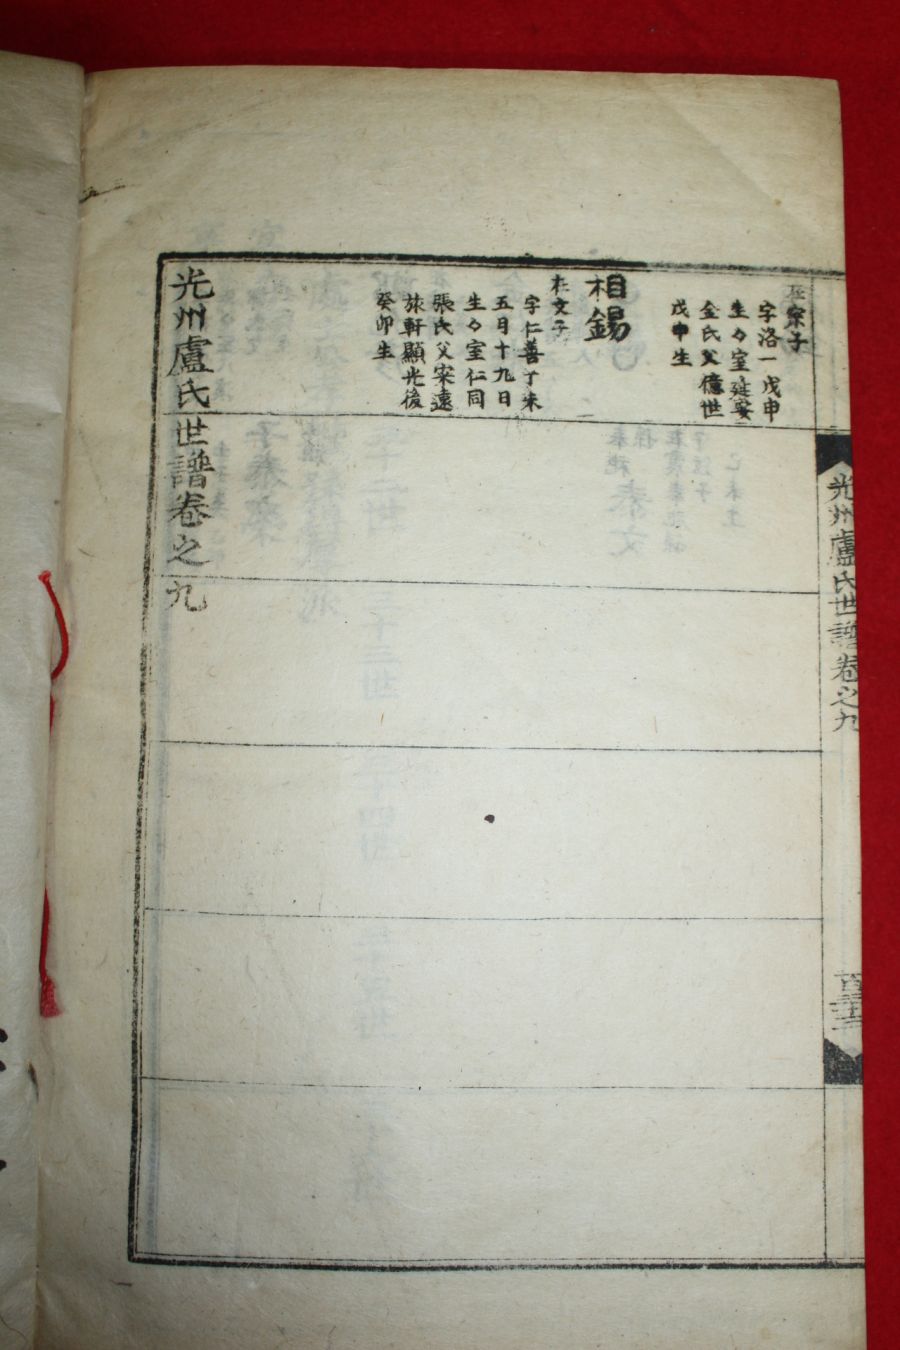 光州盧氏世譜卷之九
在宗子
字洛一戊申
生々室延安
金氏父億世
戊申生
相錫
在文子
字仁善丁未
五月十九日
生々室仁同
張氏父宋遠
旅軒顯光後
癸卯生
光州盧氏世譜卷之九